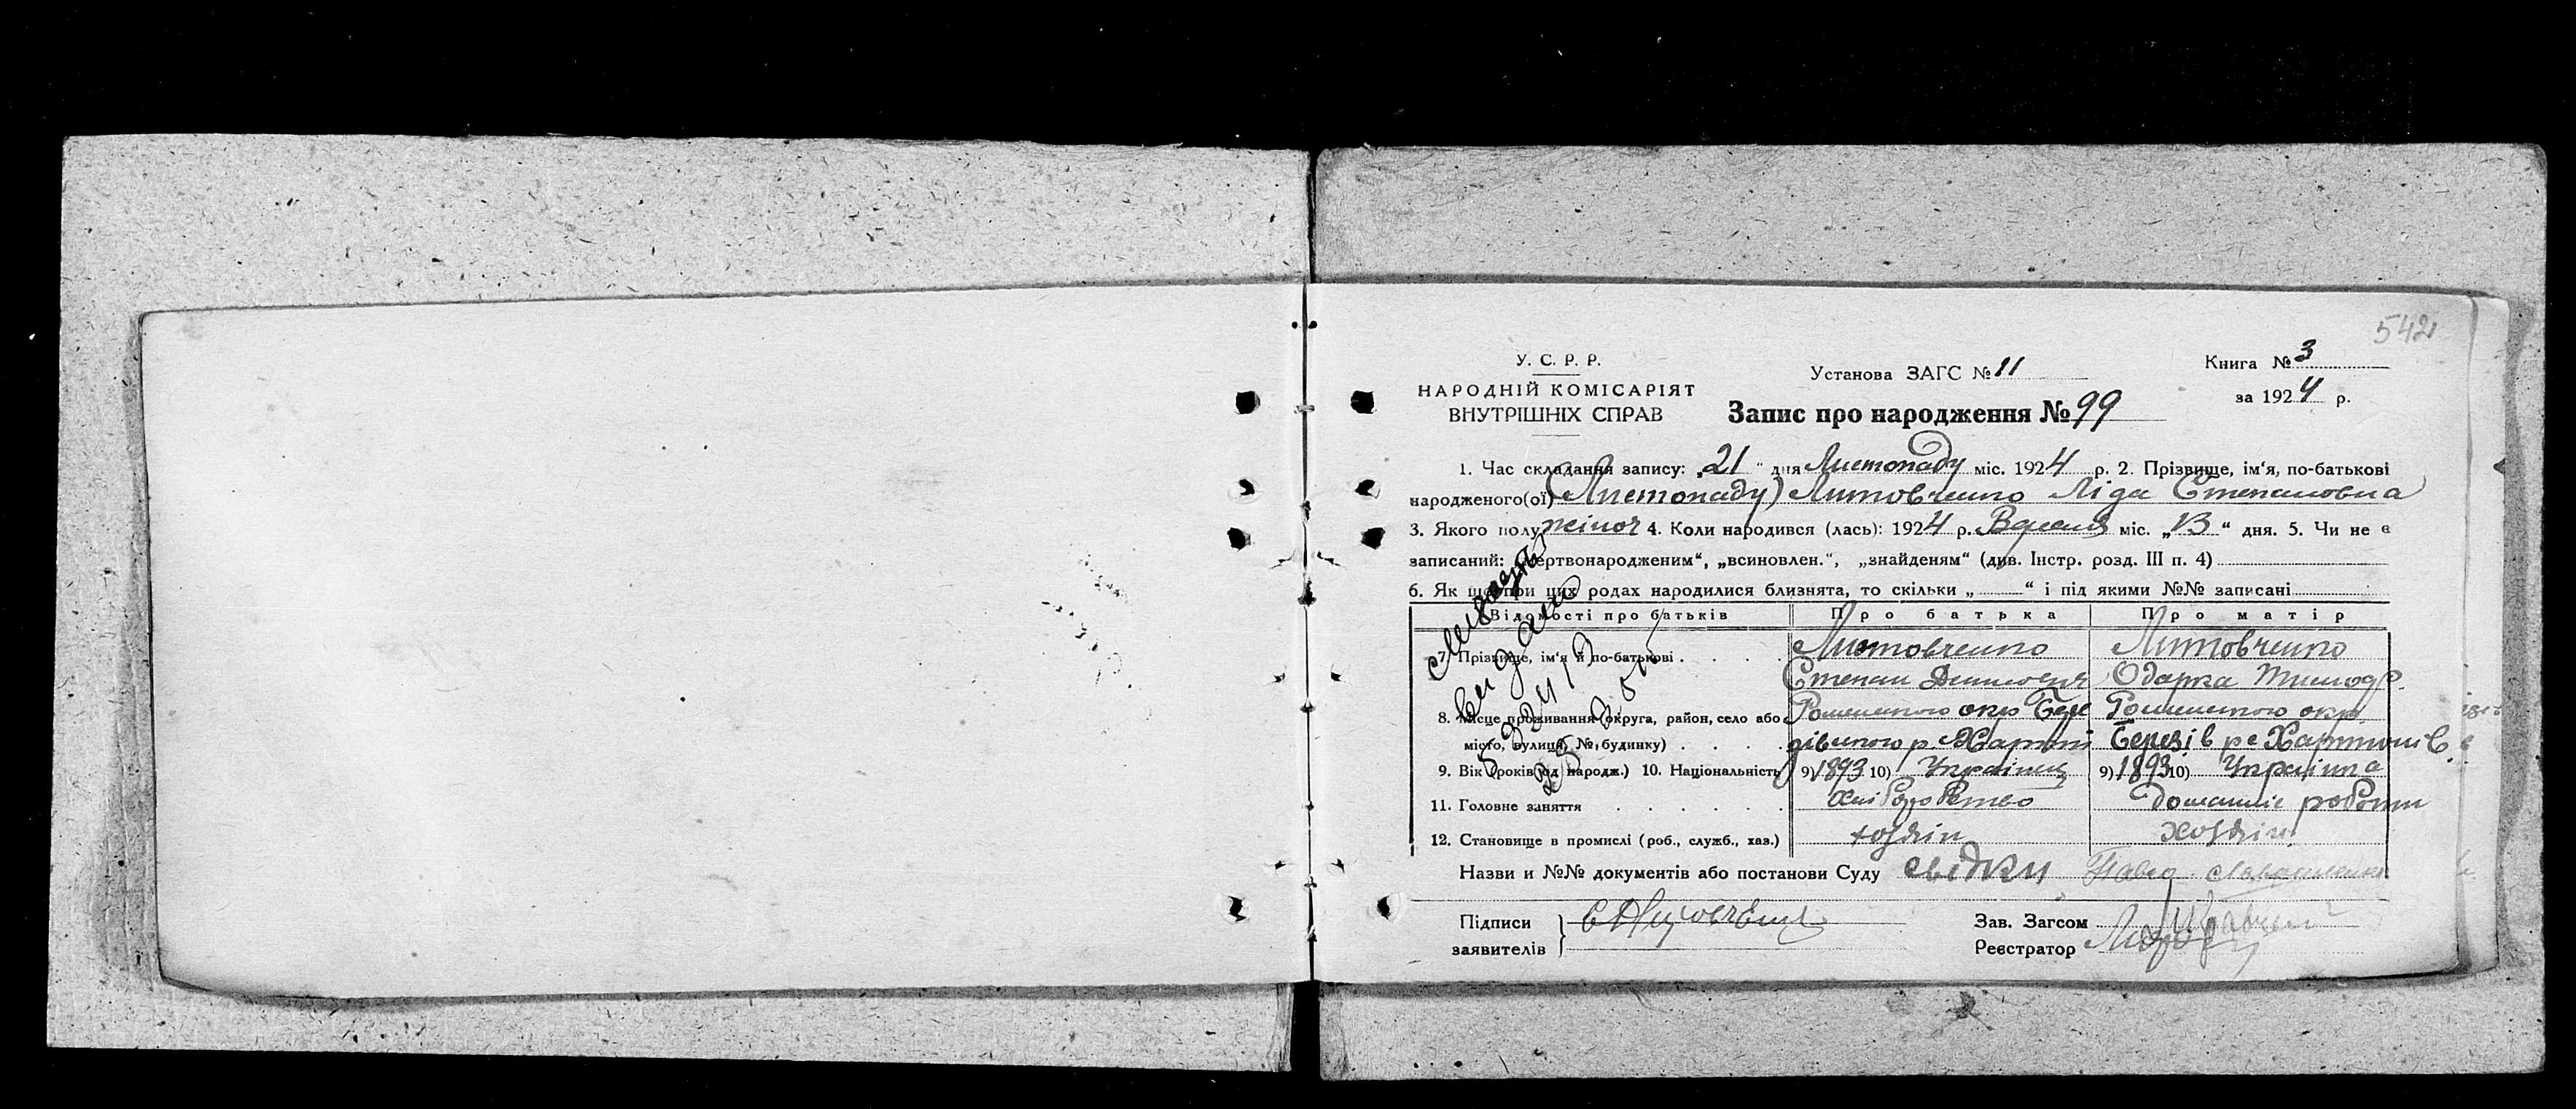 542
У. С. Р. Р.
НАРОДНІЙ КОМІСАРІЯТ
ВНУТРІШНІХ СПРАВ
Установа ЗАГС № 11
Книга № 3
за 1924 р.
Запис про народження № 99
1. Час складання запису: „21“ дня Листопаду міс. 1924 р. 2. Прізвище, ім'я, по-батькові
народженого(ої) (Листопаду) Литовченко Ліда Степановна
3. Якого полу жіноч 4. Коли народився (лась): 1924 р. Вересня міс. „13“ дня. 5. Чи не є
записаний: „мертвонародженим“, „всиновлен.“, „знайденям“ (див. Інстр. розд. III п. 4)
6. Як що при цих родах народилися близнята, то скільки „ “ і під якими №№ записані
Відомості про батьків Про батька Про матір
7. Прізвище, ім'я й по-батькові Литовченко Литовченко
Степан Одарка
8. Місце проживання (округа, район, село або Роменского окр Бере Роменского окр
місто, вулиця, №, будинку) зівського р. Березів р
9. Вік (років од народж.) 10. Національність 9) 1893 10) Українец 9) 1893 10) Українка
11. Головне заняття Хліборобство домашні роботи
12. Становище в промислі (роб., служб., хаз.) хозяін хозяін
Назви и №№ документів або постанови Суду свідки Павло
Підписи
заявителів
Зав. Загсом
Реєстратор
видано